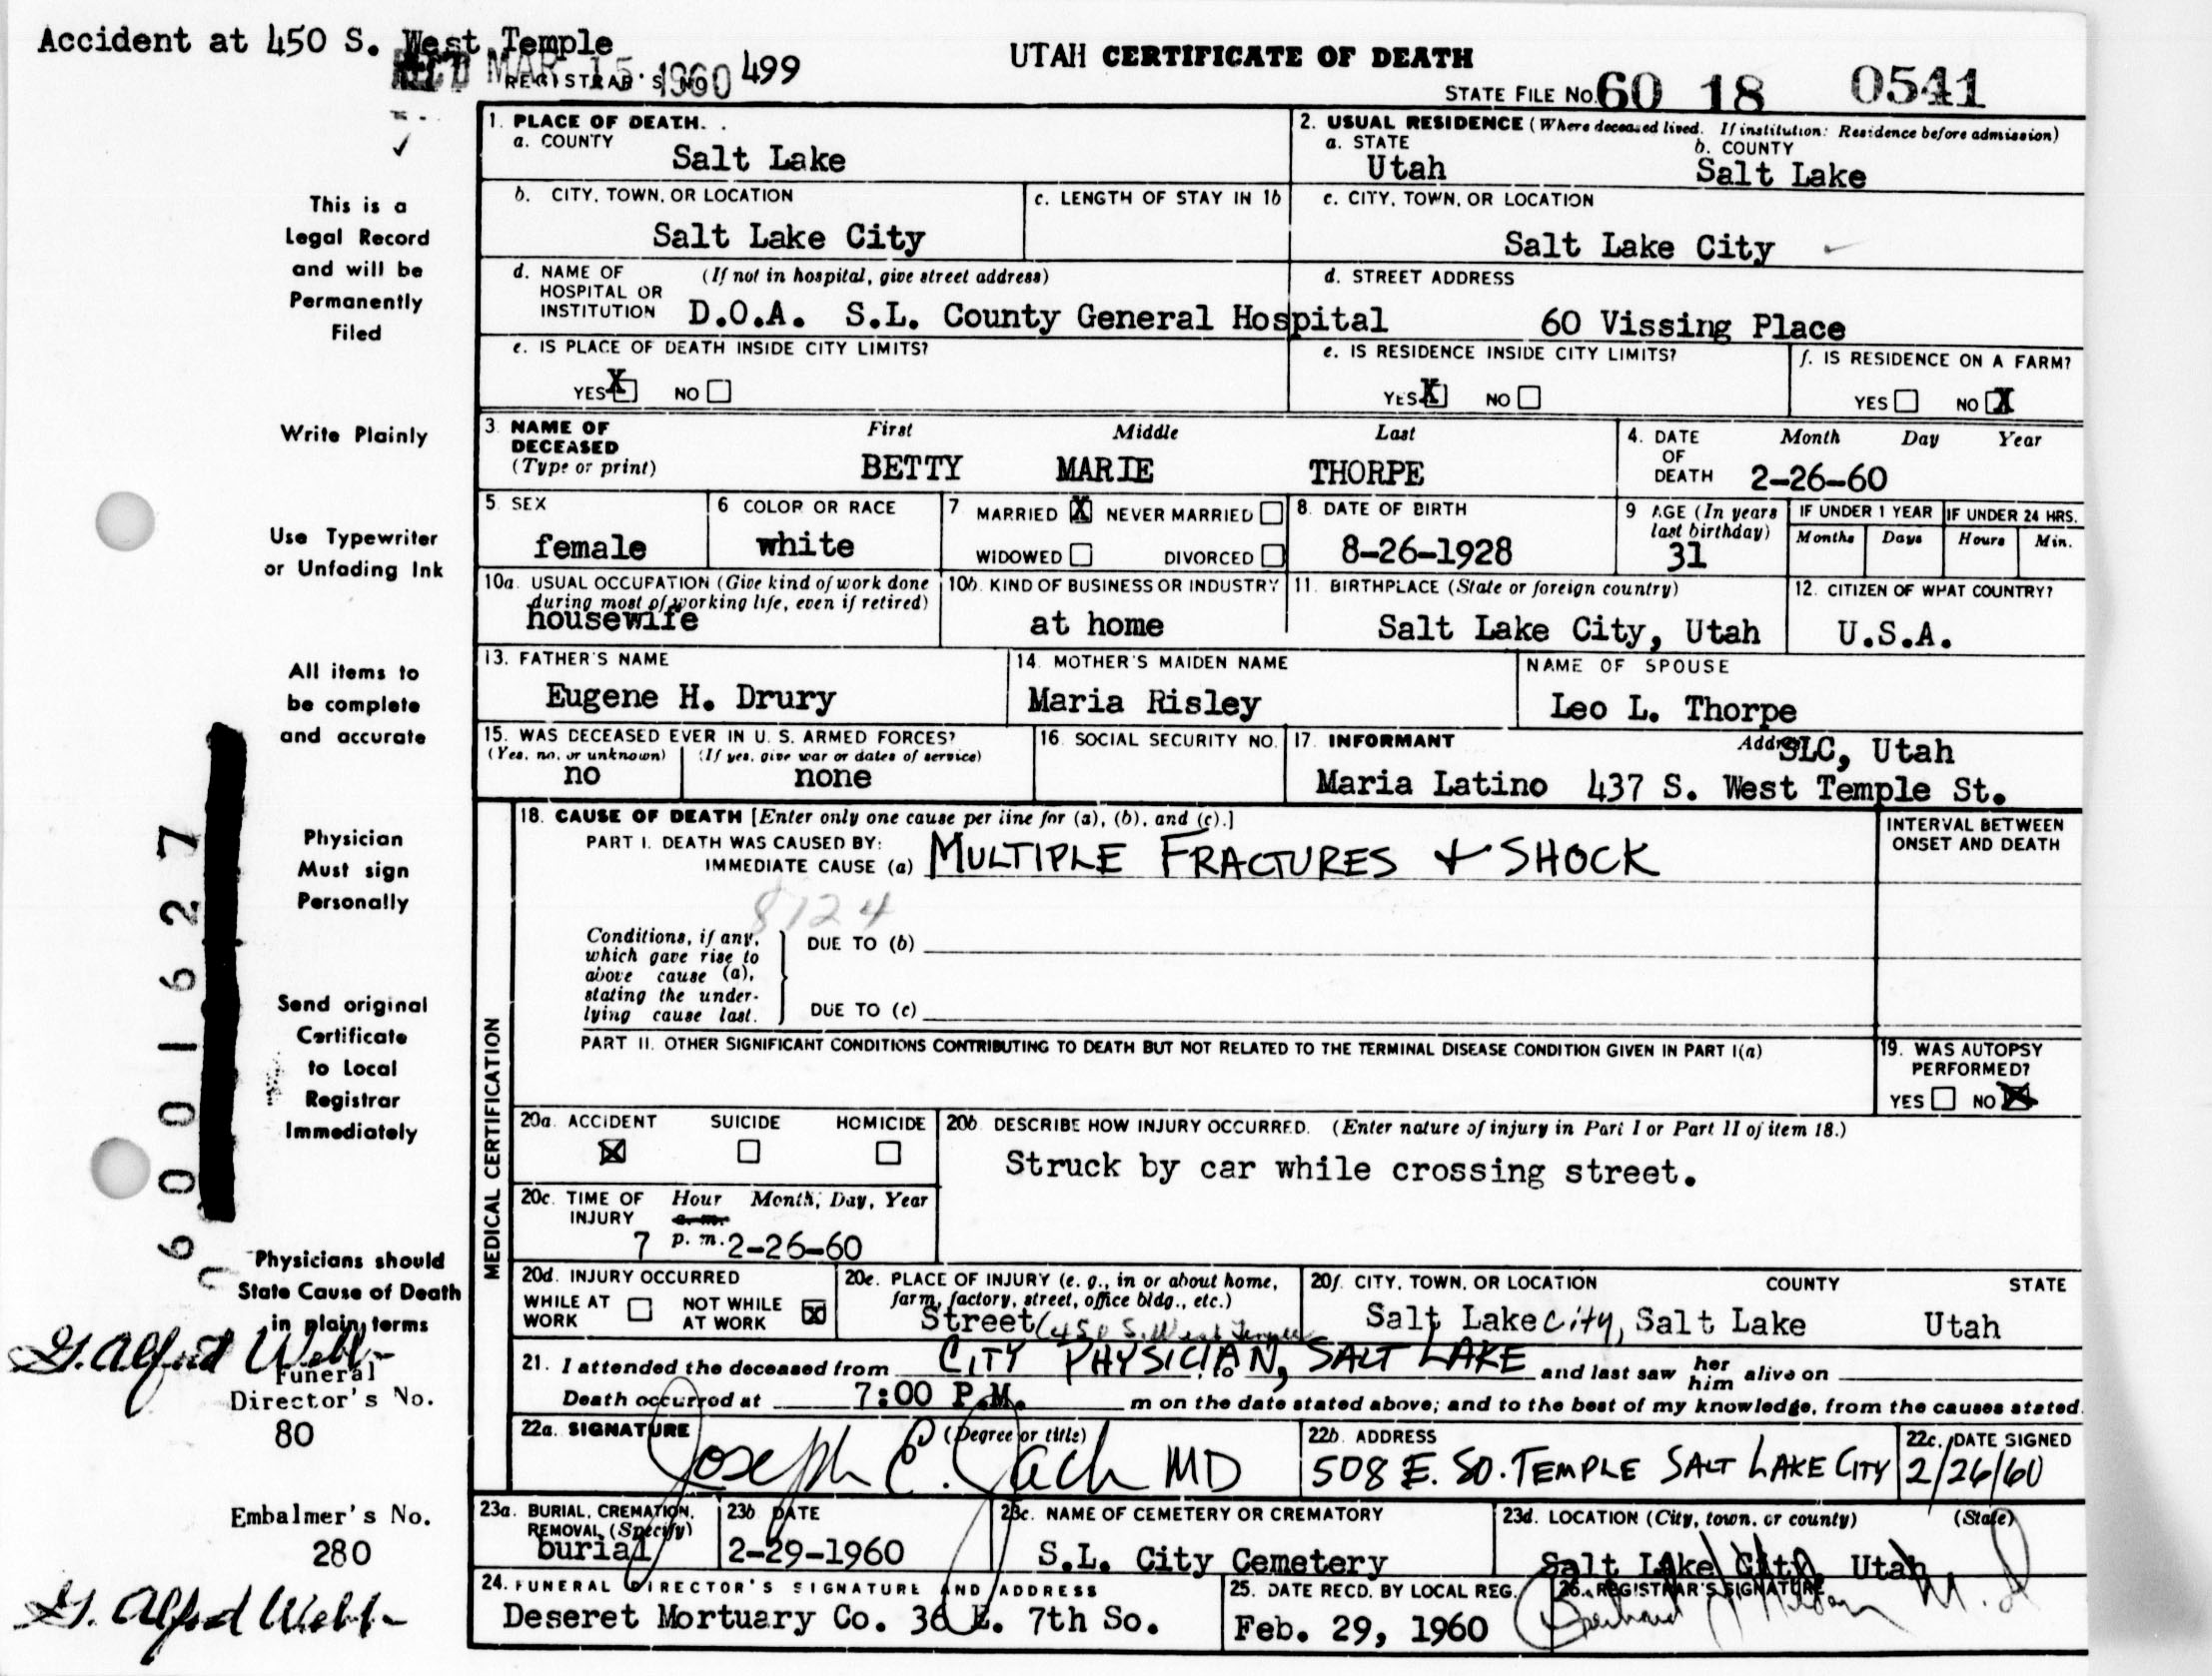 Accident at 450 S. West Temple
REC'D MAR 15 1960
REGISTRAR'S NO 499
UTAH CERTIFICATE OF DEATH
STATE FILE NO. 60 18 0541
1. PLACE OF DEATH.
a. COUNTY
Salt Lake
2. USUAL RESIDENCE (Where deceased lived. If institution: Residence before admission)
a. STATE
Utah
b. COUNTY
Salt Lake
b. CITY, TOWN, OR LOCATION
Salt Lake City
c. LENGTH OF STAY IN 1b
c. CITY, TOWN, OR LOCATION
Salt Lake City
d. NAME OF HOSPITAL OR INSTITUTION
(If not in hospital, give street address)
D.O.A. S.L. County General Hospital
d. STREET ADDRESS
60 Vissing Place
e. IS PLACE OF DEATH INSIDE CITY LIMITS?
YES X NO
e. IS RESIDENCE INSIDE CITY LIMITS?
YES X NO
f. IS RESIDENCE ON A FARM?
YES NO X
3. NAME OF DECEASED
(Type or print)
First Middle Last
BETTY MARIE THORPE
4. DATE OF DEATH
Month Day Year
2-26-60
5. SEX
female
6 COLOR OR RACE
white
7 MARRIED X NEVER MARRIED
WIDOWED DIVORCED
8. DATE OF BIRTH
8-26-1928
9 AGE (In years last birthday)
31
IF UNDER 1 YEAR
Months Days
IF UNDER 24 HRS.
Hours Min.
10a. USUAL OCCUPATION (Give kind of work done during most of working life, even if retired)
housewife
10b. KIND OF BUSINESS OR INDUSTRY
at home
11. BIRTHPLACE (State or foreign country)
Salt Lake City, Utah
12. CITIZEN OF WHAT COUNTRY?
U.S.A.
13. FATHER'S NAME
Eugene H. Drury
14. MOTHER'S MAIDEN NAME
Maria Risley
NAME OF SPOUSE
Leo L. Thorpe
15. WAS DECEASED EVER IN U. S. ARMED FORCES?
(Yes, no, or unknown) (If yes, give war or dates of service)
no none
16. SOCIAL SECURITY NO.
17. INFORMANT
Address
SLC, Utah
Maria Latino 437 S. West Temple St.
MEDICAL CERTIFICATION
18. CAUSE OF DEATH [Enter only one cause per line for (a), (b), and (c).]
PART I. DEATH WAS CAUSED BY:
IMMEDIATE CAUSE (a) MULTIPLE FRACTURES + SHOCK
INTERVAL BETWEEN ONSET AND DEATH
8124
Conditions, if any, which gave rise to above cause (a), stating the underlying cause last.
DUE TO (b)
DUE TO (c)
PART II. OTHER SIGNIFICANT CONDITIONS CONTRIBUTING TO DEATH BUT NOT RELATED TO THE TERMINAL DISEASE CONDITION GIVEN IN PART I(a)
19. WAS AUTOPSY PERFORMED?
YES NO X
20a. ACCIDENT SUICIDE HOMICIDE
X
20b DESCRIBE HOW INJURY OCCURRED. (Enter nature of injury in Part I or Part II of item 18.)
Struck by car while crossing street.
20c. TIME OF INJURY
Hour Month, Day, Year
a. m.
7 p. m. 2-26-60
20d. INJURY OCCURRED
WHILE AT WORK NOT WHILE AT WORK X
20e. PLACE OF INJURY (e. g., in or about home, farm, factory, street, office bldg., etc.)
Street (450 S. West Temple
20f. CITY, TOWN, OR LOCATION COUNTY STATE
Salt Lake City, Salt Lake Utah
21. I attended the deceased from CITY PHYSICIAN, to SALT LAKE and last saw her him alive on
Death occurred at 7:00 P.M. m on the date stated above; and to the best of my knowledge, from the causes stated.
22a. SIGNATURE (Degree or title)
Joseph C. Jach MD
22b. ADDRESS
508 E. SO. TEMPLE SALT LAKE CITY
22c. DATE SIGNED
2/26/60
23a. BURIAL, CREMATION, REMOVAL (Specify)
burial
23b DATE
2-29-1960
23c. NAME OF CEMETERY OR CREMATORY
S.L. City Cemetery
23d. LOCATION (City, town, or county) (State)
Salt Lake City Utah
24. FUNERAL DIRECTOR'S SIGNATURE AND ADDRESS
Deseret Mortuary Co. 36 E. 7th So.
25. DATE RECD. BY LOCAL REG.
Feb. 29, 1960
26. REGISTRAR'S SIGNATURE
M.D
This is a
Legal Record
and will be
Permanently
Filed
Write Plainly
Use Typewriter
or Unfading Ink
All items to
be complete
and accurate
Physician
Must sign
Personally
Send original
Certificate
to Local
Registrar
Immediately
Physicians should
State Cause of Death
in plain terms
6001627
G. Alfred Webb
Funeral
Director's No.
80
Embalmer's No.
280
G. Alfred Webb